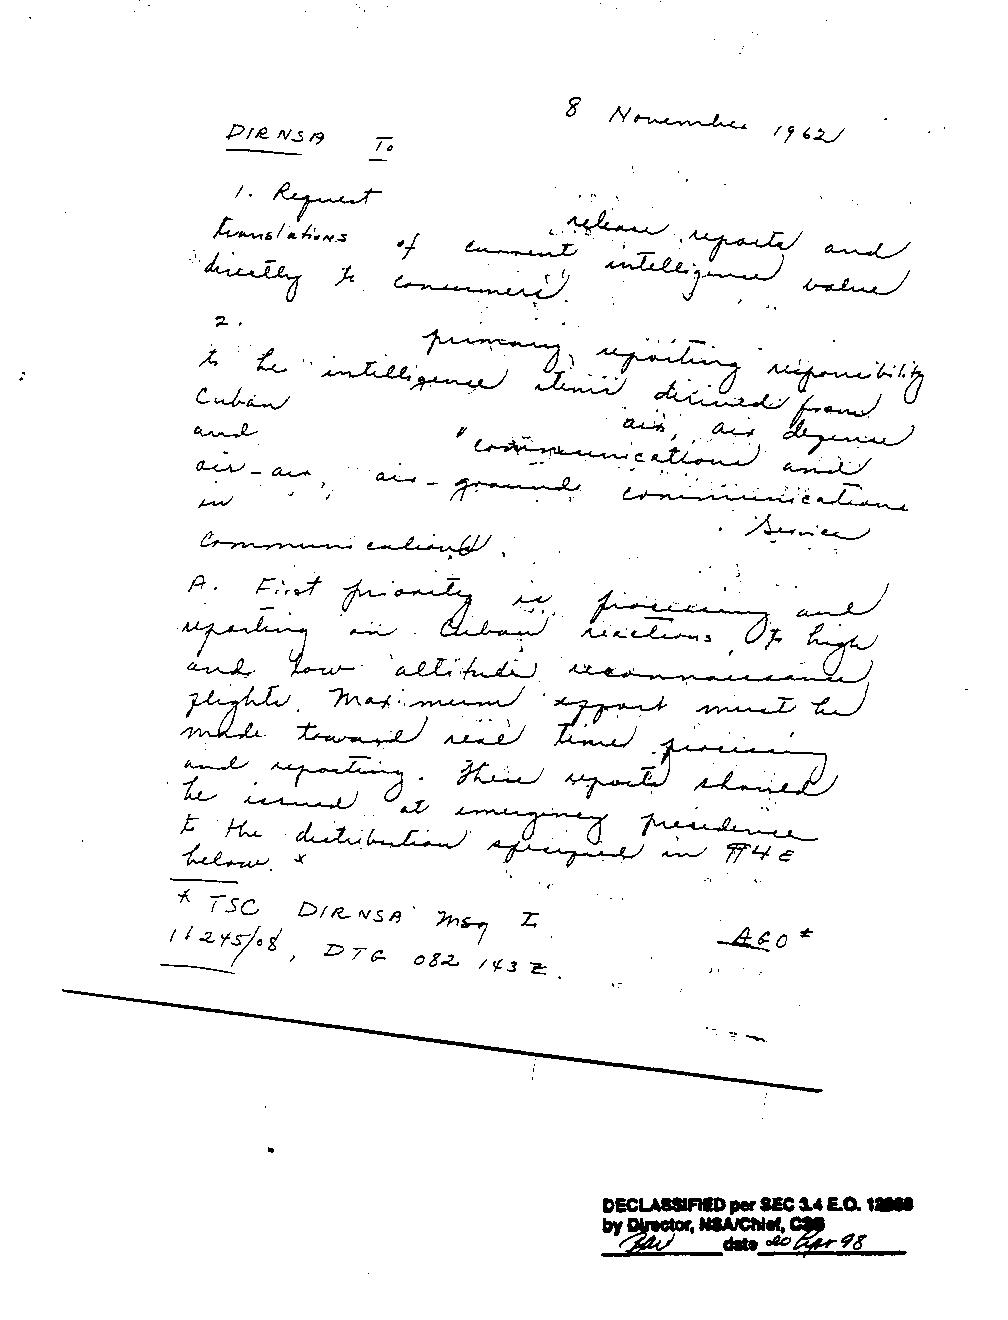 8 November 1962
DIRNSA To
1. Request
release reports and
translations of current intelligence value
directly to consumers.
2.
primary reporting responsibility
to be intelligence items derived from
Cuban air, air defense
and communications and
air-air, air-ground communications
in Service
Communications.
A. First priority is processing and
reporting on Cuban reactions to high
and low altitude reconnaissance
flights. Maximum effort must be
made toward real time processing
and reporting. These reports should
be issued at emergency precedence
to the distribution specified in ¶4E
below. *
* TSC DIRNSA Msg
11245/08, DTG 082143Z.
DECLASSIFIED per SEC 3.4 E.O.
by Director, NSA/Chief, CSS
date 20 Apr 98